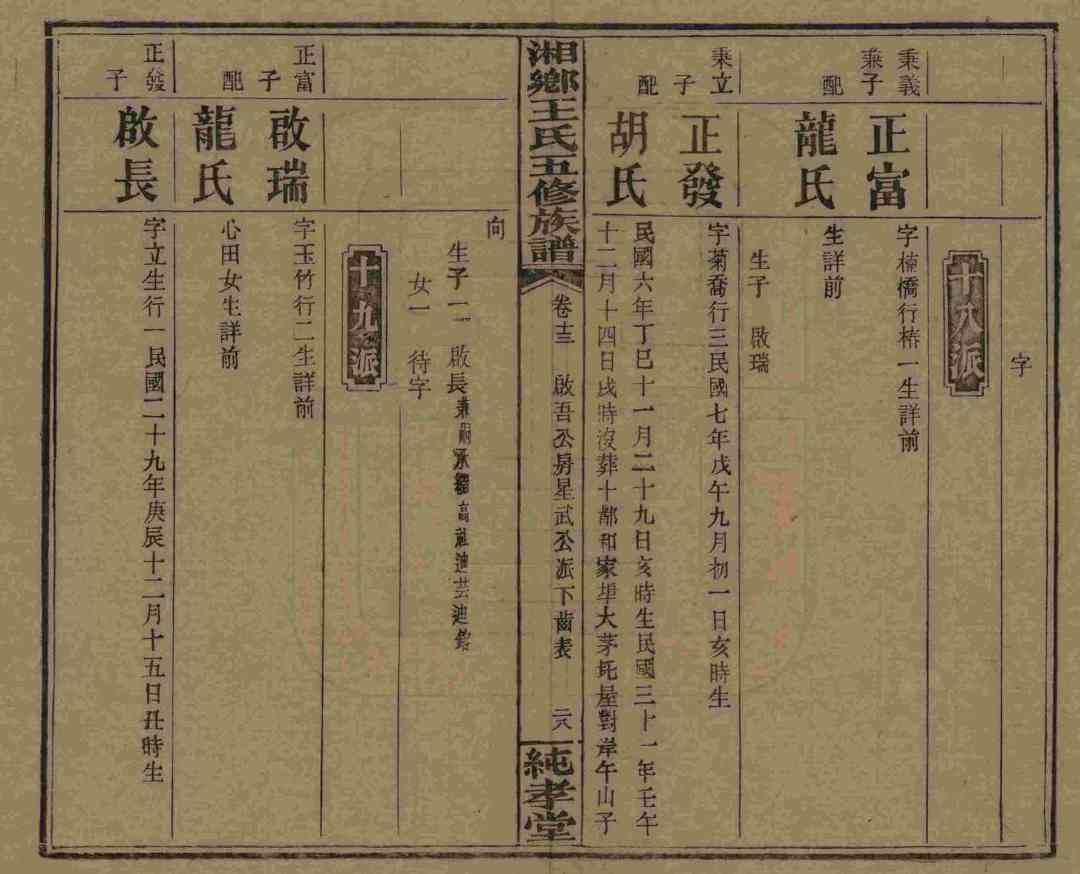 字
十八派
秉義
秉子
正富
字楠橋行椿一生詳前
配
龍氏
生詳前
生子 啟瑞
秉立
子
正發
字菊喬行三民國七年戊午九月初一日亥時生
配
胡氏
民國六年丁巳十一月二十九日亥時生民國三十一年壬午
十二月十四日戌時沒葬十都和家埠大茅坨屋對岸午山子
湘鄉王氏五修族譜
卷十三
啟吾公房星武公派下齒表
二八
純孝堂
向
生子二 啟長
女一 待字
十九派
正富
子
啟瑞
字玉竹行二生詳前
配
龍氏
心田女生詳前
正發
子
啟長
字立生行一民國二十九年庚辰十二月十五日丑時生